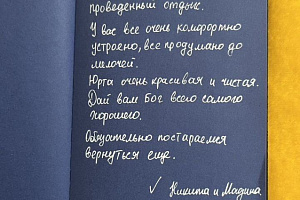 проведенный отдых.
У вас все очень комфортно
устроено, все продумано до
мелочей.
Юрта очень красивая и чистая.
Дай вам Бог всего самого
хорошего.
Обязательно постараемся
вернуться еще.
✓ Никита и Мадина.